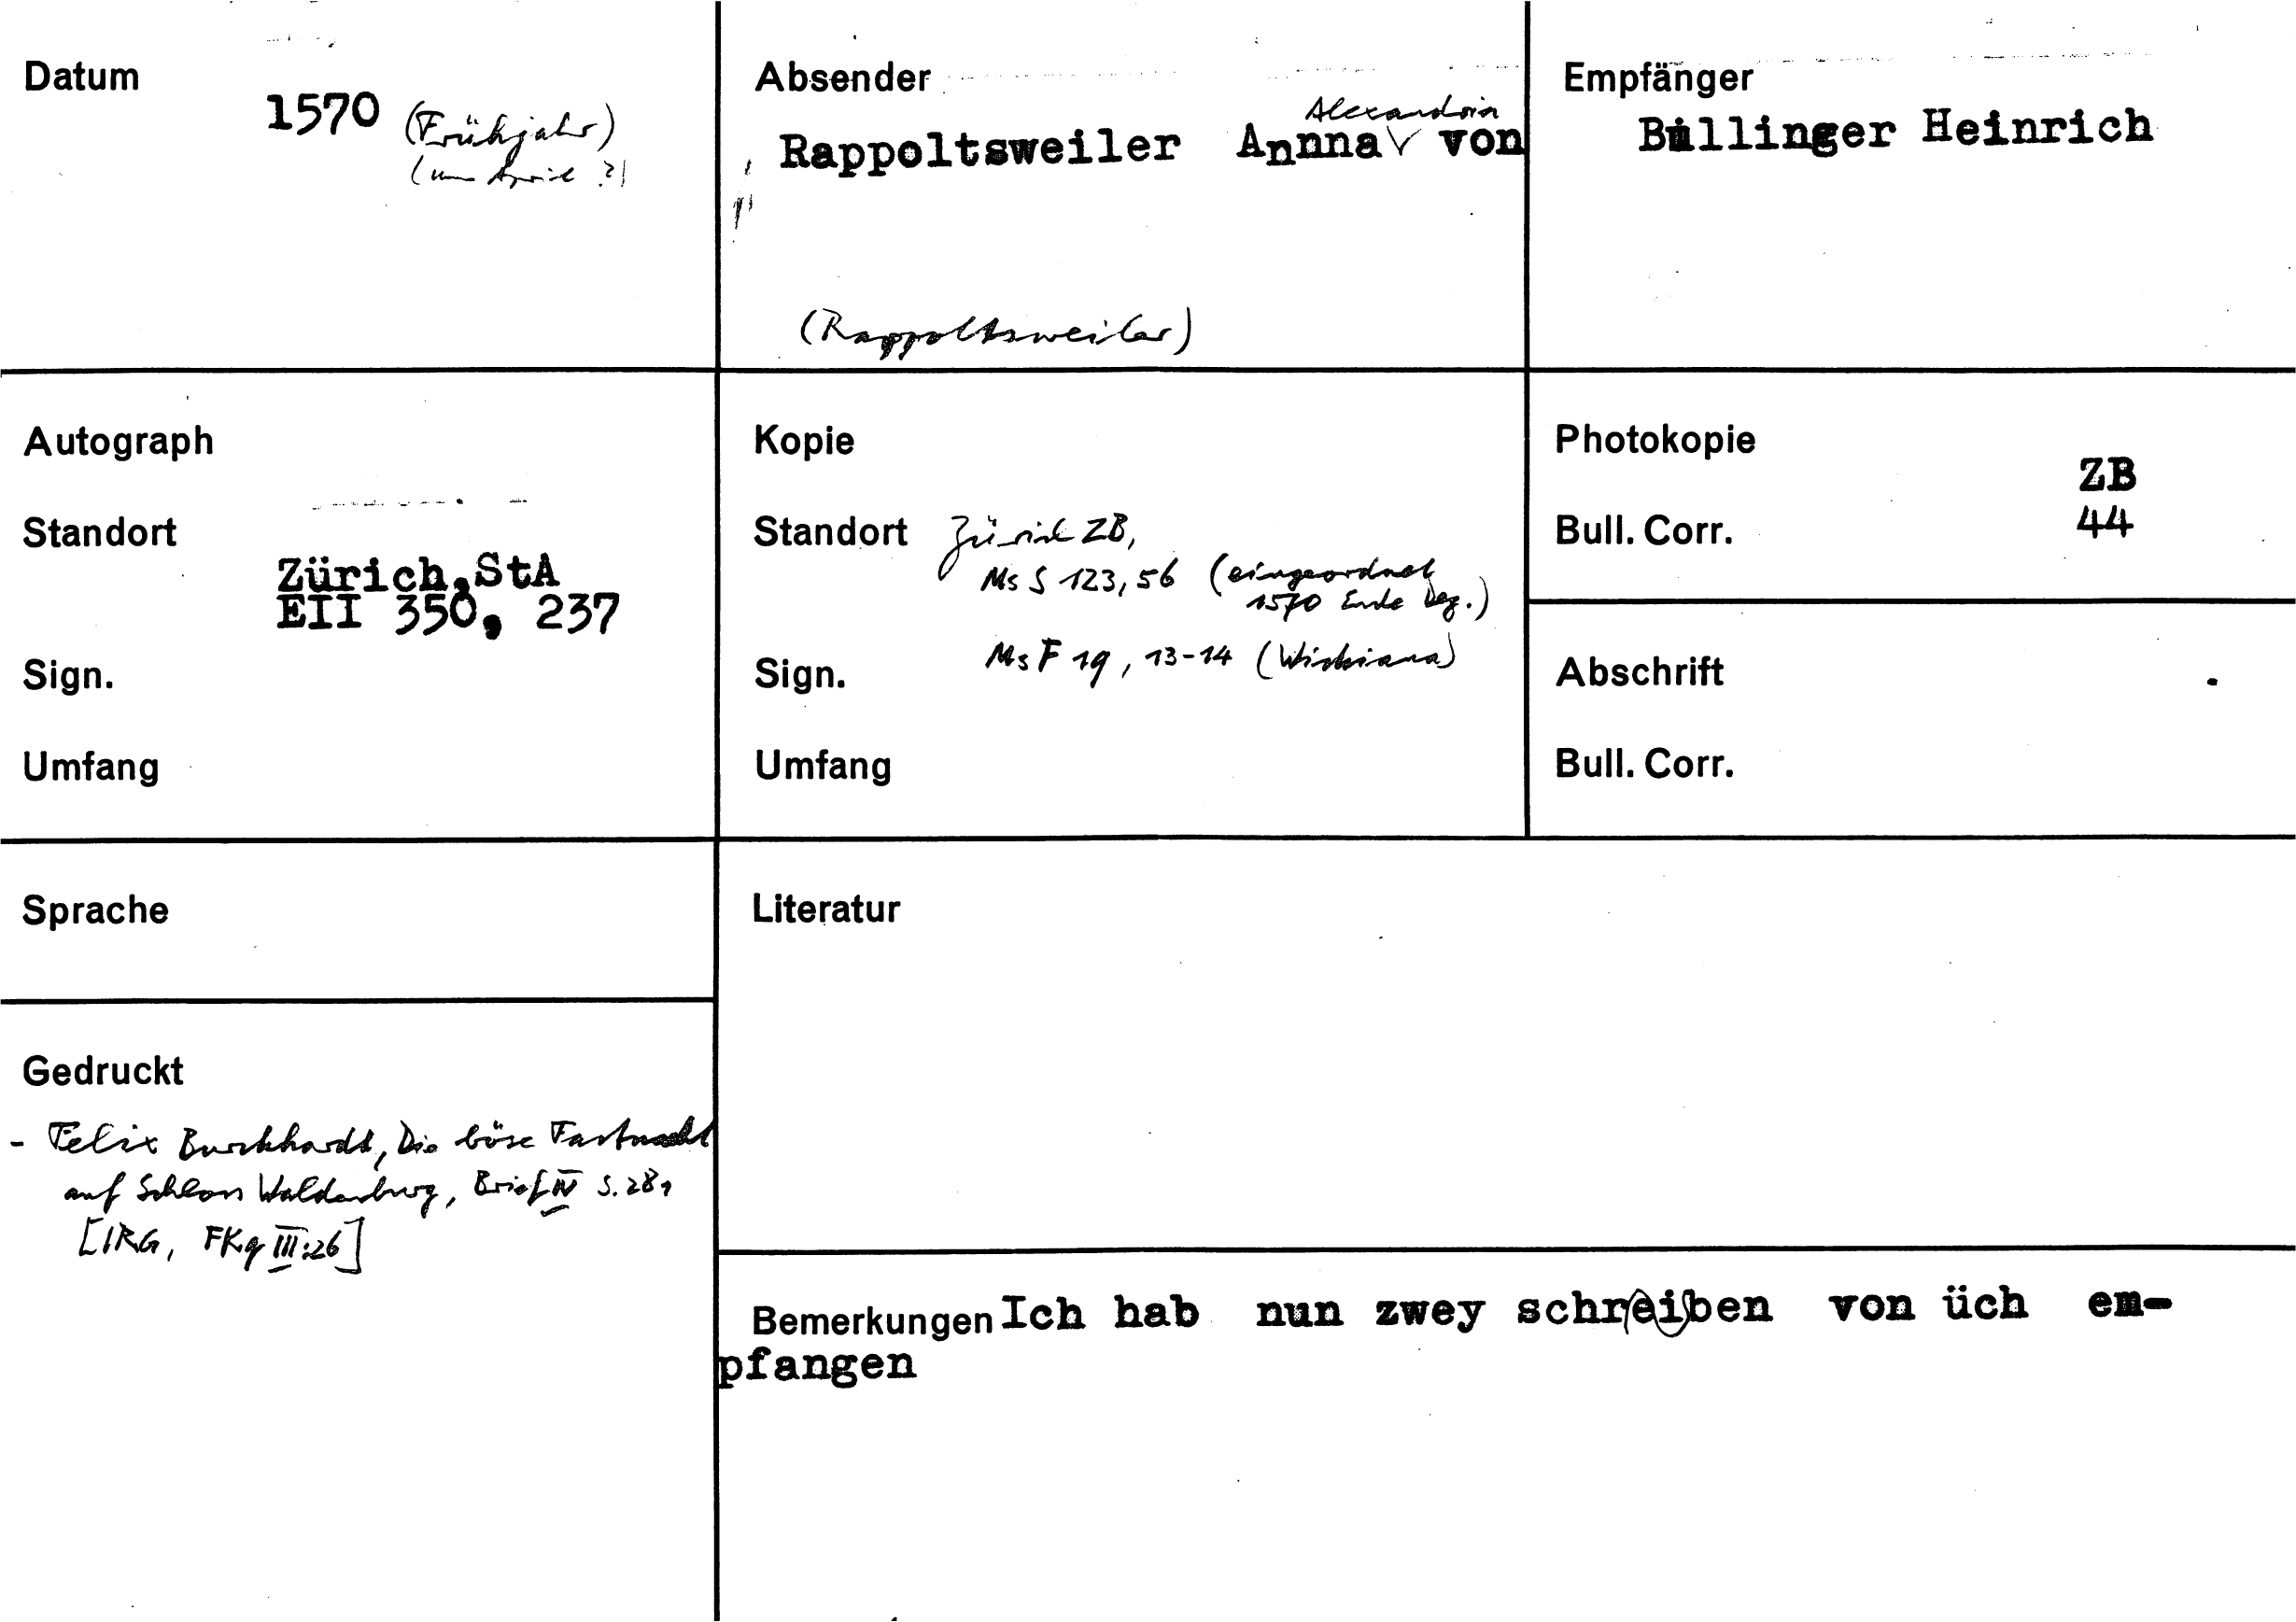 Datum
1570 (Frühjahr)
(um April ?)
Absender
Alexandrin
Rappoltsweiler Annna von
(Rappoltsweiler)
Empfänger
Bullinger Heinrich
Autograph
Standort
Zürich, StA
EII 350, 237
Sign.
Umfang
Kopie
Standort Zürich ZB,
Ms S 123, 56 (eingeordnet
1570 Ende Dez.)
Sign. Ms F 19, 13-14 (Wickiana)
Umfang
Photokopie
ZB
Bull. Corr. 44
Abschrift
Bull. Corr.
Sprache
Literatur
Gedruckt
- Felix Burckhardt, Die böse Fastnacht
auf Schloss Waldenburg, Brief IV S. 28,
[IRG, FKg III:26]
Bemerkungen Ich hab nun zwey schreiben von üch em-
pfangen